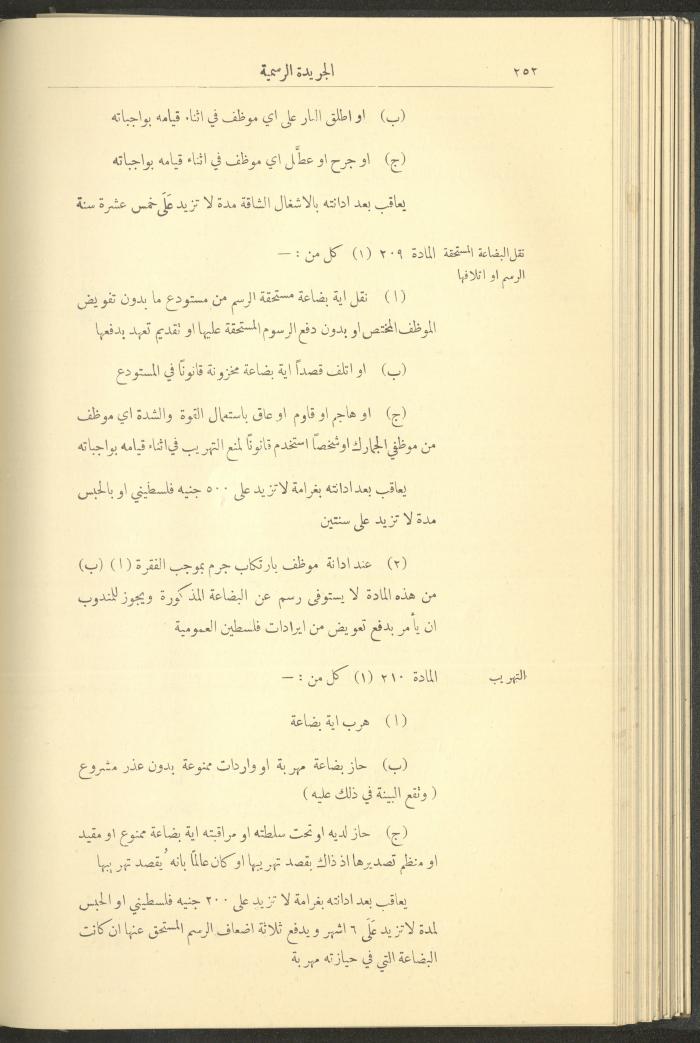 ٢٥٢
الجريدة الرسمية
(ب) او اطلق النار على اي موظف في اثناء قيامه بواجباته
(ج) او جرح او عطَّل اي موظف في اثناء قيامه بواجباته
يعاقب بعد ادانته بالاشغال الشاقة مدة لا تزيد عَلَى خمس عشرة سنة
نقل البضاعة المستحقة
الرسم او اتلافها
المادة ٢٠٩ (١) كل من : —
(ا) نقل اية بضاعة مستحقة الرسم من مستودع ما بدون تفويض
الموظف المختص او بدون دفع الرسوم المستحقة عليها او تقديم تعهد بدفعها
(ب) او اتلف قصداً اية بضاعة مخزونة قانونًا في المستودع
(ج) او هاجم او قاوم او عاق باستعمال القوة والشدة اي موظف
من موظفي الجمارك او شخصًا استخدم قانونًا لمنع التهريب في اثناء قيامه بواجباته
يعاقب بعد ادانته بغرامة لا تزيد على ٥٠٠ جنيه فلسطيني او بالحبس
مدة لا تزيد على سنتين
(٢) عند ادانة موظف بارتكاب جرم بموجب الفقرة (١) (ب)
من هذه المادة لا يستوفى رسم عن البضاعة المذكورة ويجوز للمندوب
ان يأمر بدفع تعويض من ايرادات فلسطين العمومية
التهريب
المادة ٢١٠ (١) كل من : —
(ا) هرب اية بضاعة
(ب) حاز بضاعة مهربة او واردات ممنوعة بدون عذر مشروع
( وتقع البينة في ذلك عليه )
(ج) حاز لديه او تحت سلطته او مراقبته اية بضاعة ممنوع او مقيد
او منظم تصديرها اذ ذاك بقصد تهريبها او كان عالمًا بانه يُقصد تهريبها
يعاقب بعد ادانته بغرامة لا تزيد على ٢٠٠ جنيه فلسطيني او الحبس
لمدة لا تزيد عَلَى ٦ اشهر ويدفع ثلاثة اضعاف الرسم المستحق عنها ان كانت
البضاعة التي في حيازته مهربة